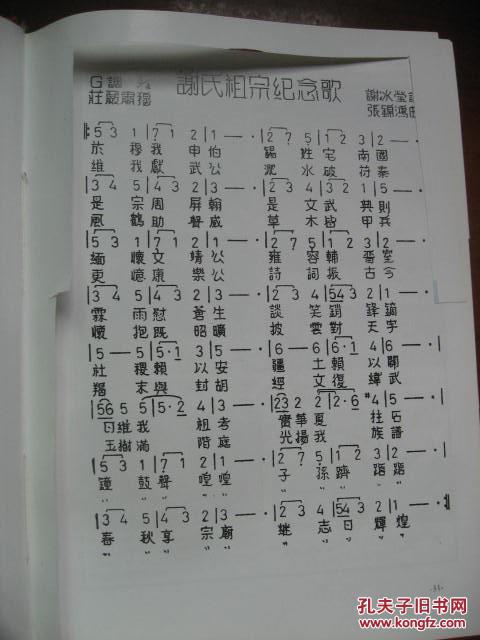 G調 4/4 謝氏祖宗紀念歌 謝冰瑩詞
莊嚴肅穆 張錦鴻曲
‖: 5 3 1 | 7 1 2 | 1 — — · | 2 7 5 | 1 2 3 | 2 — — · |
於 穆我 申 伯 錫 姓 宅 南 國
維 我獻 武 公 淝 水 破 苻 秦
| 3 4 5 | 4 3 2 | 3 — — · | 2 3 4 | 5 4 3 | 1 5 — · |
是 宗周 屏 翰 是 文武 典 則
風 鶴助 聲 威 草 木皆 甲 兵
| 5 3 1 | 7 1 2 | 1 — — · | 2 7 5 | 1 2 3 | 2 — — · |
緬 懷文 靖 公 雍 容輔 晉 室
更 憶康 樂 公 詩 詞振 古 今
| 3 4 5 | 4 3 2 | 3 — — · | 2 3 4 | 54 3 2 | 1 — — · |
霖 雨慰 蒼 生 談 笑銷 鋒 鏑
懷 抱既 昭 曠 披 雲對 天 宇
| 5 — 5 | 5 · 1 3 | 5 — — · | 6 — 6 | 6 · 1 4 | 6 — — · |
社 稷 賴 以 安 疆 土 賴 以 闢
羯 末 與 封 胡 經 文 復 緯 武
| 56 5 5 | 5 · 2 4 | 3 — — · | 23 2 2 | 2 · 6 #4 | 5 — — · |
曰維我 祖 考 實華夏 柱 石
玉樹滿 階 庭 光揚我 族 譜
| 5 3 1 | 7 1 2 | 1 — — · | 2 7 5 | 1 2 3 | 2 — — · |
鐘 鼓聲 喤 喤 子 孫躋 蹌 蹌
| 3 4 5 | 4 3 2 | 3 — — · | 2 3 4 | 54 3 2 | 1 — — · :‖
春 秋享 宗 廟 繼 志日 輝 煌
孔夫子旧书网
www.kongfz.com